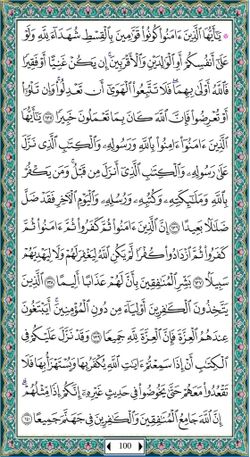 ۞ يَٰٓأَيُّهَا ٱلَّذِينَ ءَامَنُوا۟ كُونُوا۟ قَوَّٰمِينَ بِٱلْقِسْطِ شُهَدَآءَ لِلَّهِ وَلَوْ
عَلَىٰٓ أَنفُسِكُمْ أَوِ ٱلْوَٰلِدَيْنِ وَٱلْأَقْرَبِينَ ۚ إِن يَكُنْ غَنِيًّا أَوْ فَقِيرًا
فَٱللَّهُ أَوْلَىٰ بِهِمَا ۖ فَلَا تَتَّبِعُوا۟ ٱلْهَوَىٰٓ أَن تَعْدِلُوا۟ ۚ وَإِن تَلْوُۥٓا۟
أَوْ تُعْرِضُوا۟ فَإِنَّ ٱللَّهَ كَانَ بِمَا تَعْمَلُونَ خَبِيرًا ١٣٥ يَٰٓأَيُّهَا
ٱلَّذِينَ ءَامَنُوٓا۟ ءَامِنُوا۟ بِٱللَّهِ وَرَسُولِهِۦ وَٱلْكِتَٰبِ ٱلَّذِى نَزَّلَ
عَلَىٰ رَسُولِهِۦ وَٱلْكِتَٰبِ ٱلَّذِىٓ أَنزَلَ مِن قَبْلُ ۚ وَمَن يَكْفُرْ
بِٱللَّهِ وَمَلَٰٓئِكَتِهِۦ وَكُتُبِهِۦ وَرُسُلِهِۦ وَٱلْيَوْمِ ٱلْءَاخِرِ فَقَدْ ضَلَّ
ضَلَٰلًۢا بَعِيدًا ١٣٦ إِنَّ ٱلَّذِينَ ءَامَنُوا۟ ثُمَّ كَفَرُوا۟ ثُمَّ ءَامَنُوا۟ ثُمَّ
كَفَرُوا۟ ثُمَّ ٱزْدَادُوا۟ كُفْرًا لَّمْ يَكُنِ ٱللَّهُ لِيَغْفِرَ لَهُمْ وَلَا لِيَهْدِيَهُمْ
سَبِيلًۢا ١٣٧ بَشِّرِ ٱلْمُنَٰفِقِينَ بِأَنَّ لَهُمْ عَذَابًا أَلِيمًا ١٣٨ ٱلَّذِينَ
يَتَّخِذُونَ ٱلْكَٰفِرِينَ أَوْلِيَآءَ مِن دُونِ ٱلْمُؤْمِنِينَ ۚ أَيَبْتَغُونَ
عِندَهُمُ ٱلْعِزَّةَ فَإِنَّ ٱلْعِزَّةَ لِلَّهِ جَمِيعًا ١٣٩ وَقَدْ نَزَّلَ عَلَيْكُمْ فِى
ٱلْكِتَٰبِ أَنْ إِذَا سَمِعْتُمْ ءَايَٰتِ ٱللَّهِ يُكْفَرُ بِهَا وَيُسْتَهْزَأُ بِهَا فَلَا
تَقْعُدُوا۟ مَعَهُمْ حَتَّىٰ يَخُوضُوا۟ فِى حَدِيثٍ غَيْرِهِۦٓ ۚ إِنَّكُمْ إِذًا مِّثْلُهُمْ ۗ
إِنَّ ٱللَّهَ جَامِعُ ٱلْمُنَٰفِقِينَ وَٱلْكَٰفِرِينَ فِى جَهَنَّمَ جَمِيعًا ١٤٠
100